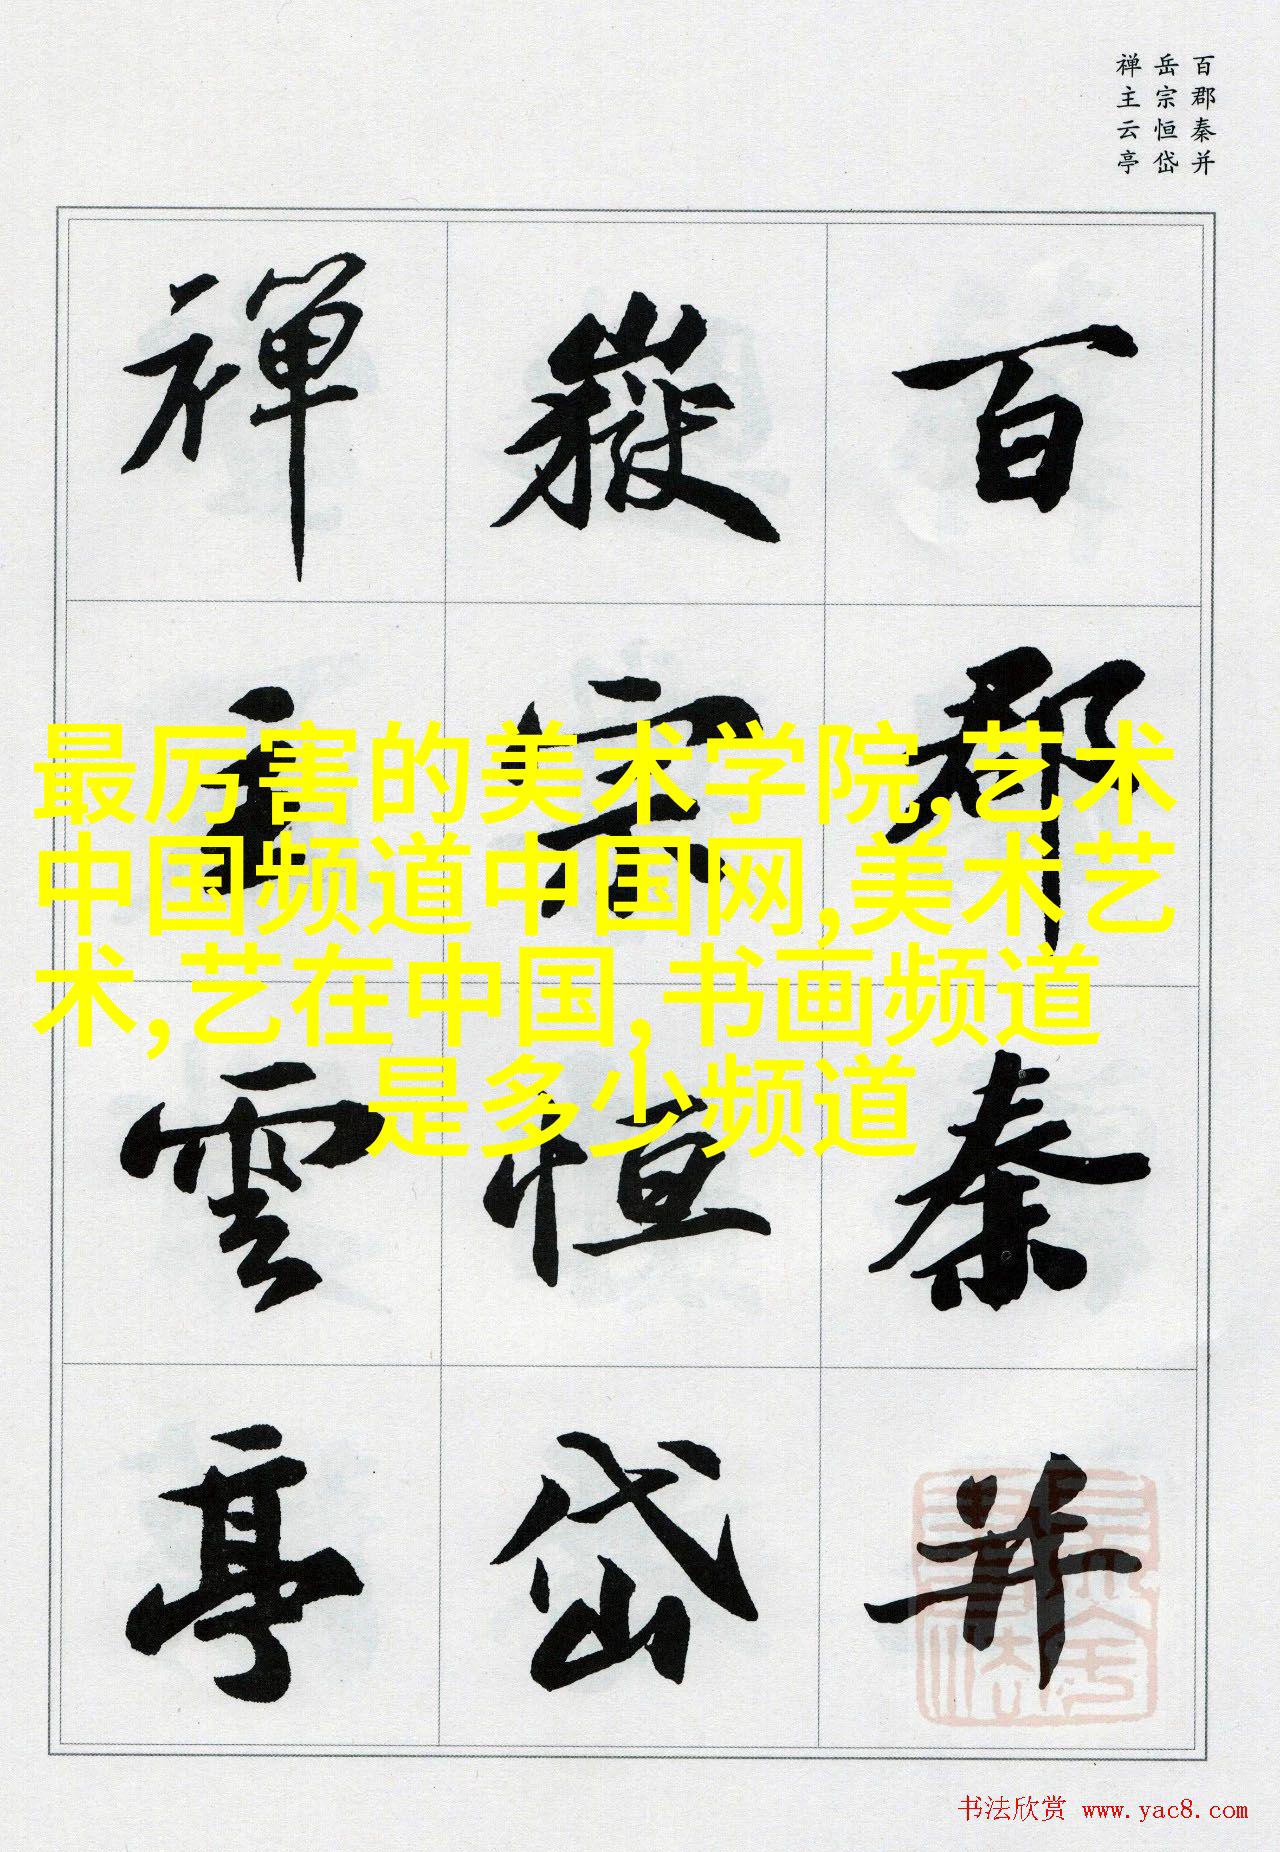 百郡秦并
岳宗恒岱
禅主云亭
百郡秦并
嶽宗恒岱
禅主雲亭
最厉害的美术学院,艺术
中国频道中国网,美术艺
术,艺在中国,书画频道
是多少频道
书法欣赏 www.yac8.com